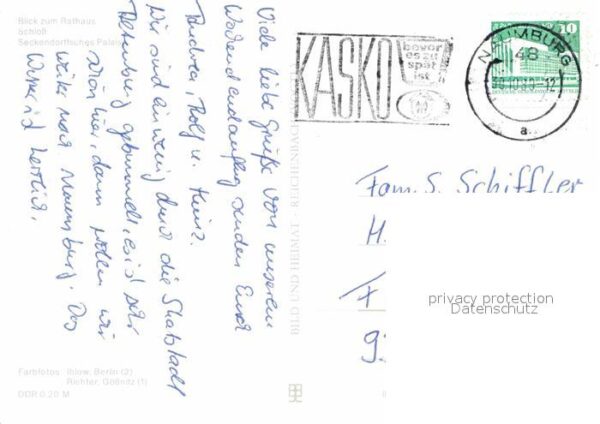 Blick zum Rathaus
Schloß
Seckendorffsches Palais
Viele liebe Grüße von unserem
Wochenendausflug senden Euch
Andrea, Rolf u.
Wir sind ein wenig durch die Skatstadt
Altenburg gebummelt, es ist sehr
schön hier, dann wollen wir
weiter nach Naumburg. Das
Wetter ist herrlich.
Farbfotos: Ihlow, Berlin (2)
Richter, Gößnitz (1)
DDR 0,20 M
BILD UND HEIMAT · REICHENBACH
KASKO
bevor
es zu
spät
ist
NAUMBURG
48
a
10
Fam. S. Schiffler
H
F
9
privacy protection
Datenschutz